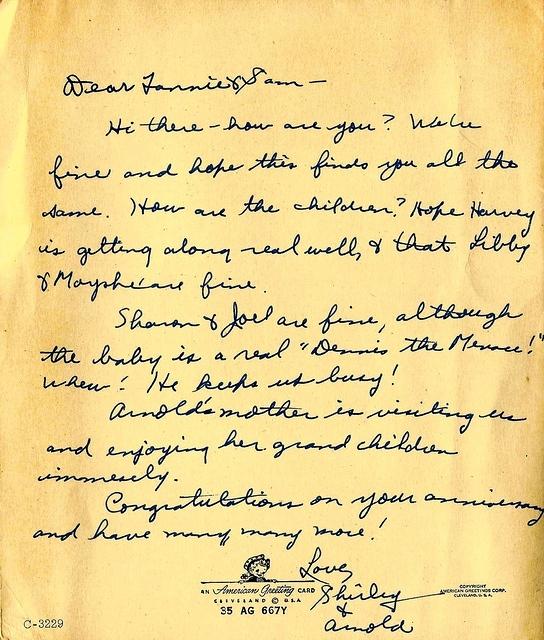 Dear Fannie & Sam –
Hi there – how are you? We're
fine and hope this finds you all the
same. How are the children? Hope Harvey
is getting along real well, & that Libby
& Moyshe are fine.
Sharon & Joel are fine, although
the baby is a real "Dennis the Menace!"
Whew! He keeps us busy!
Arnold's mother is visiting us
and enjoying her grand children
immesely.
Congratulations on your anniversary
and have many, many more!
Love,
Shirley
&
Arnold
AN American Greeting CARD
CLEVELAND © U.S.A.
35 AG 667Y
COPYRIGHT
AMERICAN GREETINGS CORP.
CLEVELAND, U.S.A.
C-3229